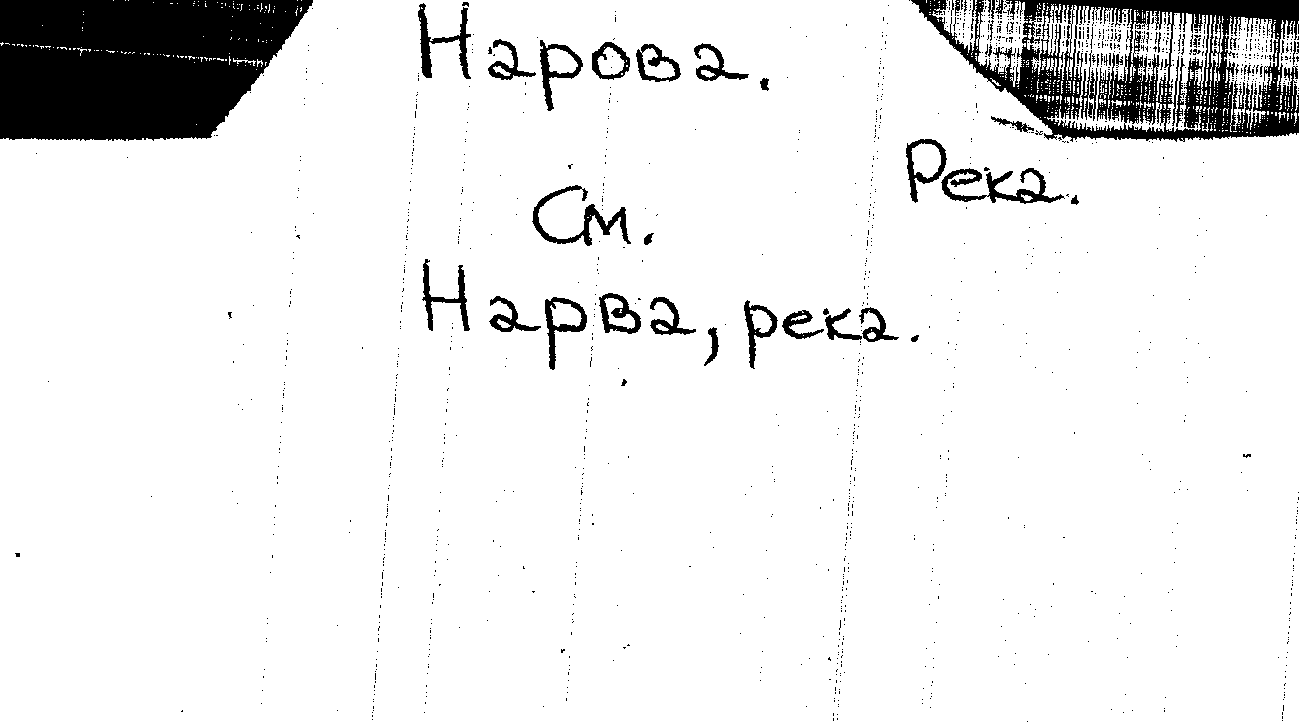 Нарова.
Река.
См.
Нарва, река.